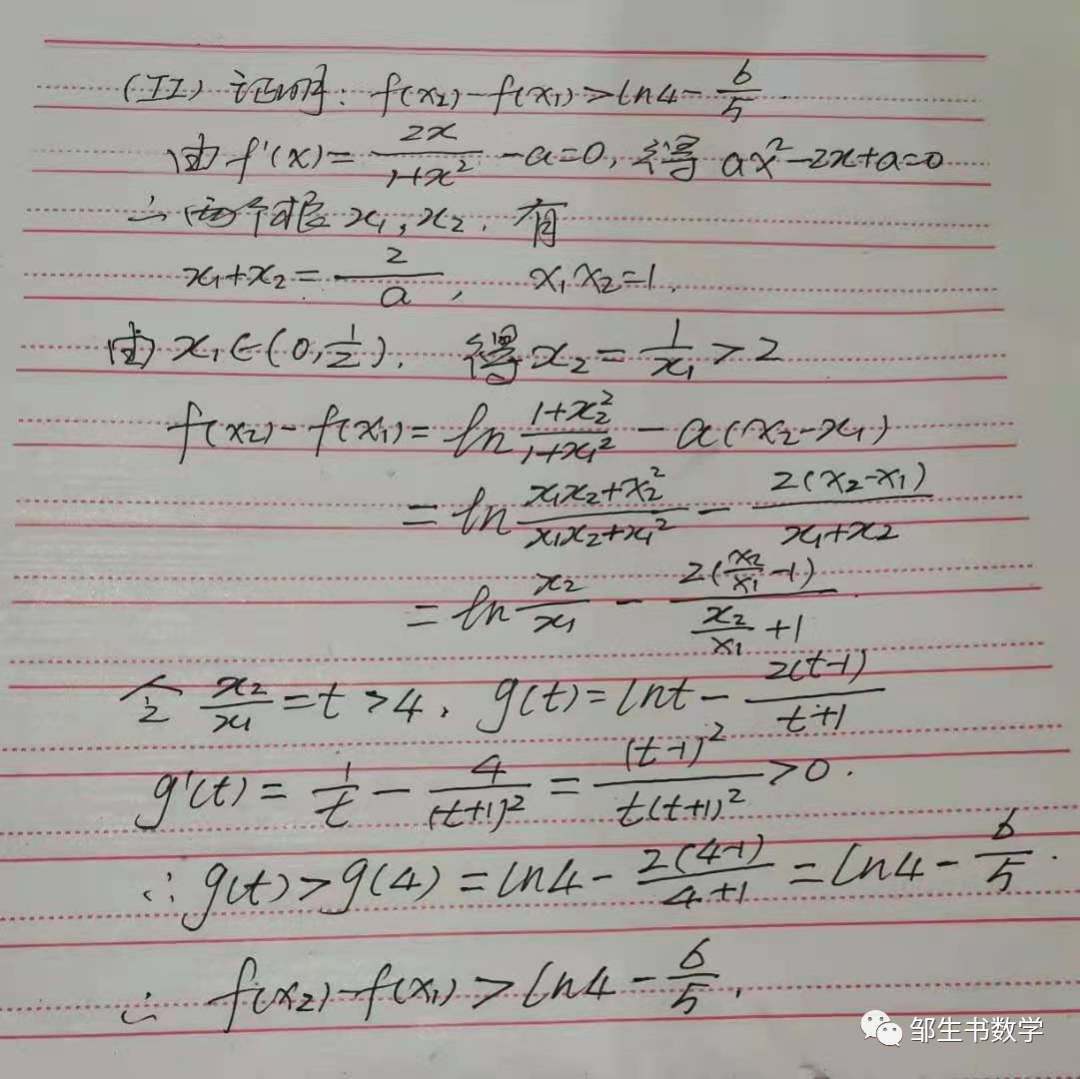 (II) 证明: f(x₂)-f(x₁)>ln4-6/5.
由f'(x)=2x/(1+x²)-a=0, 得 ax²-2x+a=0
∴两个根x₁,x₂. 有
x₁+x₂=2/a, x₁x₂=1.
由x₁∈(0,1/2). 得x₂=1/x₁>2
f(x₂)-f(x₁)=ln (1+x₂²)/(1+x₁²) - a(x₂-x₁)
=ln (x₁x₂+x₂²)/(x₁x₂+x₁²) - 2(x₂-x₁)/(x₁+x₂)
=ln x₂/x₁ - 2(x₂/x₁-1)/(x₂/x₁+1).
令 x₂/x₁=t>4. g(t)=lnt-2(t-1)/(t+1)
g'(t)=1/t-4/(t+1)²=(t-1)²/(t(t+1)²)>0.
∴g(t)>g(4)=ln4-2(4-1)/(4+1)=ln4-6/5.
∴f(x₂)-f(x₁)>ln4-6/5.
邹生书数学